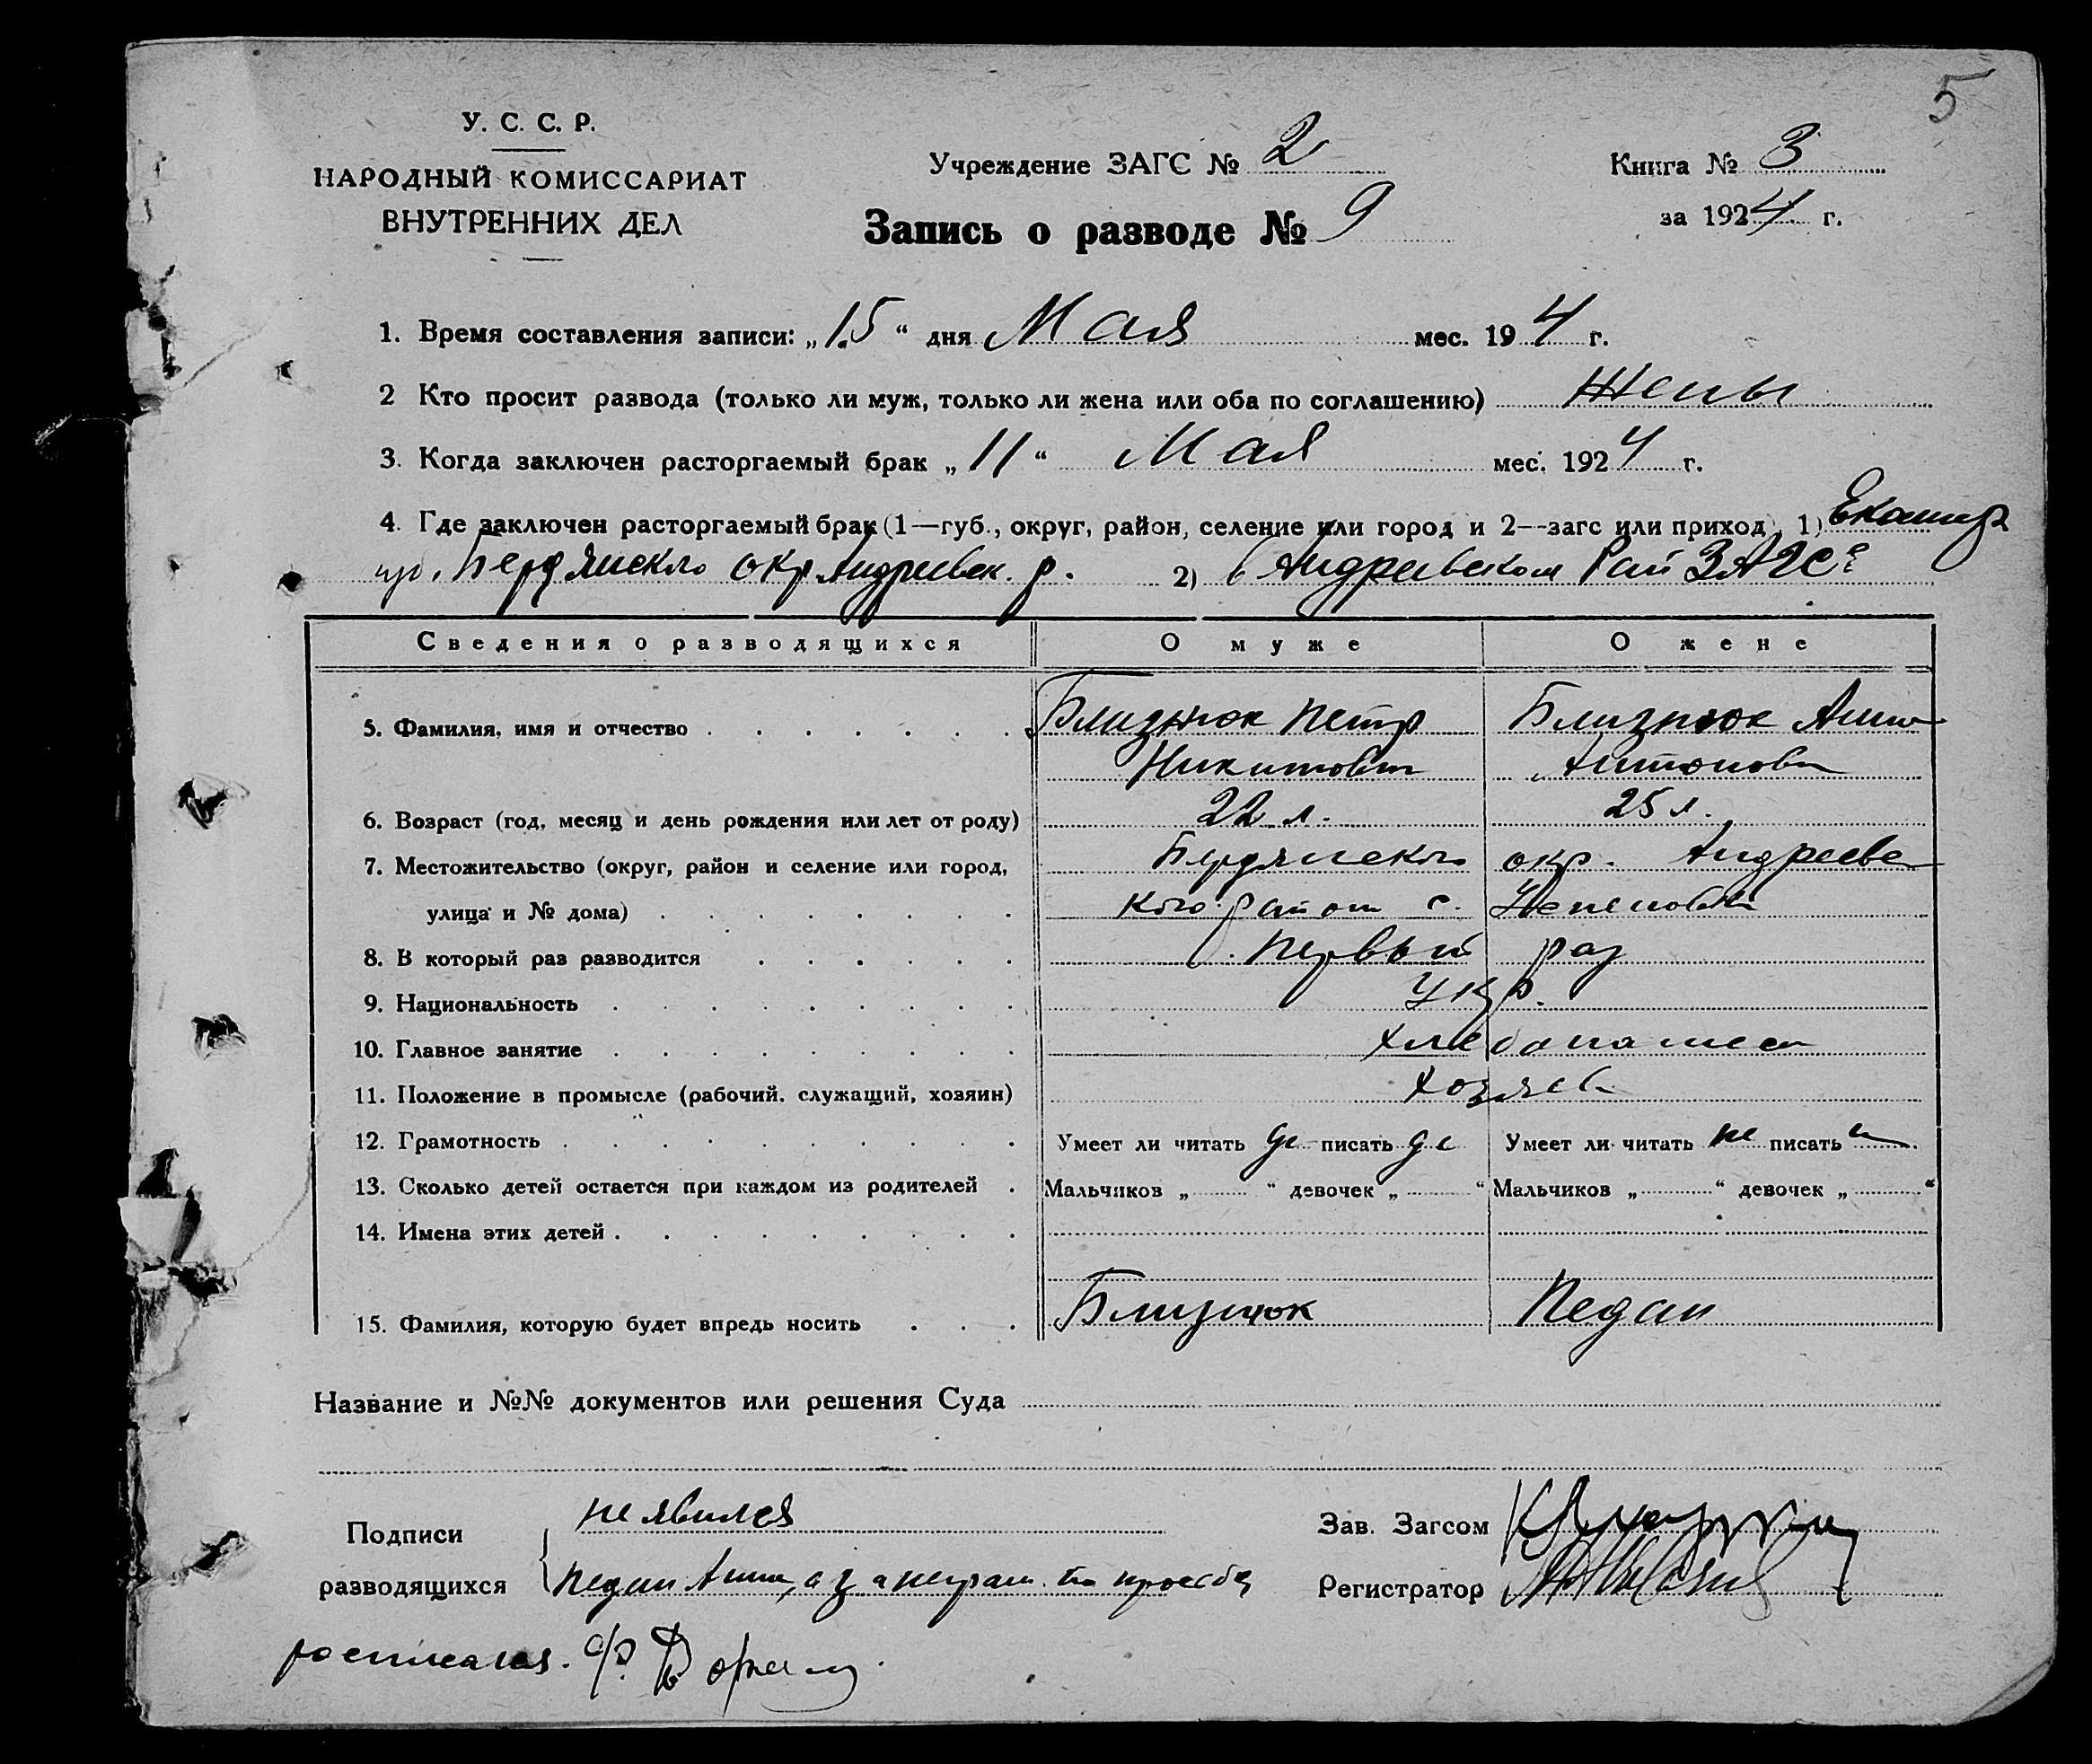 5
У. С. С. Р.
НАРОДНЫЙ КОМИССАРИАТ
ВНУТРЕННИХ ДЕЛ
Учреждение ЗАГС № 2
Книга № 3
за 1924 г.
Запись о разводе № 9
1. Время составления записи: „15“ дня Мая мес. 194 г.
2 Кто просит развода (только ли муж, только ли жена или оба по соглашению) Жены
3. Когда заключен расторгаемый брак „11“ Мая мес. 1924 г.
4. Где заключен расторгаемый брак (1—губ., округ, район, селение или город и 2—загс или приход), 1) Екатер
гу. Бердянскго окр Андреевск. р. 2) в Андреевском Рай ЗАГСе
Сведения о разводящихся О муже О жене
5. Фамилия, имя и отчество Близнюк Петр Близнюк Анна
Никитович Антоновна
6. Возраст (год, месяц и день рождения или лет от роду) 22 л. 25 л.
7. Местожительство (округ, район и селение или город, Бердянского окр. Андреевс
улица и № дома) кого район с.
8. В который раз разводится Первый раз
9. Национальность Укр.
10. Главное занятие хлебопашест
11. Положение в промысле (рабочий, служащий, хозяин) хозяев
12. Грамотность Умеет ли читать да писать да Умеет ли читать не писать н
13. Сколько детей остается при каждом из родителей Мальчиков „ “ девочек „ “ Мальчиков „ “ девочек „ “
14. Имена этих детей
15. Фамилия, которую будет впредь носить Близнюк Педан
Название и №№ документов или решения Суда
Подписи не явился Зав. Загсом
разводящихся Педан Анна, а за неграм. по просьбе Регистратор
росписался.